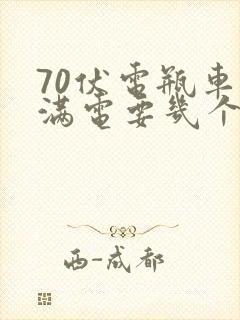 70伏電瓶車
滿電要幾个
西-成都